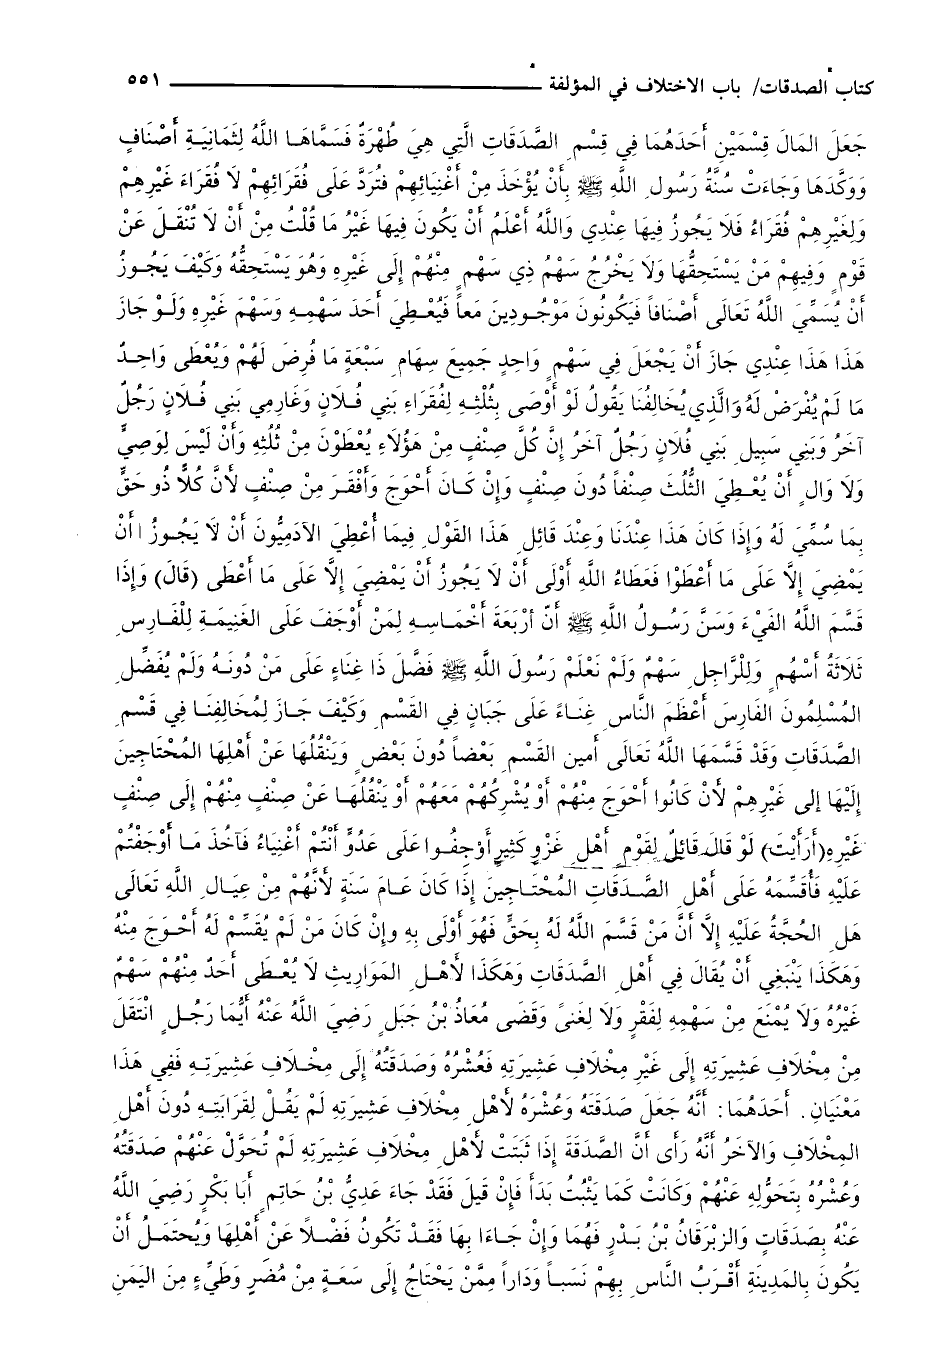 كتاب الصدقات/ باب الاختلاف في المؤلفة ٥٥١
جَعَلَ المَالَ قِسْمَيْنِ أَحَدَهُمَا فِي قِسْمِ الصَّدَقَاتِ الَّتِي هِيَ طُهْرَةٌ فَسَمَّاهَا اللَّهُ لِثَمَانِيَةِ أَصْنَافٍ
وَوَكَّدَهَا وَجَاءَتْ سُنَّةُ رَسُولِ اللَّهِ ﷺ بِأَنْ يُؤْخَذَ مِنْ أَغْنِيَائِهِمْ فَتُرَدَّ عَلَى فُقَرَائِهِمْ لَا فُقَرَاءَ غَيْرِهِمْ
وَلِغَيْرِهِمْ فُقَرَاءُ فَلَا يَجُوزُ فِيهَا عِنْدِي وَاللَّهُ أَعْلَمُ أَنْ يَكُونَ فِيهَا غَيْرُ مَا قُلْتُ مِنْ أَنْ لَا تُنْقَلَ عَنْ
قَوْمٍ وَفِيهِمْ مَنْ يَسْتَحِقُّهَا وَلَا يَخْرُجُ سَهْمُ ذِي سَهْمٍ مِنْهُمْ إِلَى غَيْرِهِ وَهُوَ يَسْتَحِقُّهُ وَكَيْفَ يَجُوزُ
أَنْ يُسَمِّيَ اللَّهُ تَعَالَى أَصْنَافاً فَيَكُونُونَ مَوْجُودِينَ مَعاً فَيُعْطِيَ أَحَدَ سَهْمِهِ وَسَهْمَ غَيْرِهِ وَلَوْ جَازَ
هَذَا هَذَا عِنْدِي جَازَ أَنْ يَجْعَلَ فِي سَهْمٍ وَاحِدٍ جَمِيعَ سِهَامِ سَبْعَةٍ مَا فُرِضَ لَهُمْ وَيُعْطَى وَاحِدٌ
مَا لَمْ يُفْرَضْ لَهُ وَالَّذِي يُخَالِفُنَا يَقُولُ لَوْ أَوْصَى بِثُلْثِهِ لِفُقَرَاءِ بَنِي فُلَانٍ وَغَارِمِي بَنِي فُلَانٍ رَجُلٌ
آخَرُ وَبَنِي سَبِيلِ بَنِي فُلَانٍ رَجُلٌ آخَرُ إِنَّ كُلَّ صِنْفٍ مِنْ هَؤُلَاءِ يُعْطَوْنَ مِنْ ثُلُثِهِ وَأَنْ لَيْسَ لِوَصِيٍّ
وَلَا وَالٍ أَنْ يُعْطِيَ الثُّلُثَ صِنْفاً دُونَ صِنْفٍ وَإِنْ كَانَ أَحْوَجَ وَأَفْقَرَ مِنْ صِنْفٍ لأَنَّ كُلاًّ ذُو حَقٍّ
بِمَا سُمِّيَ لَهُ وَإِذَا كَانَ هَذَا عِنْدَنَا وَعِنْدَ قَائِلِ هَذَا القَوْلِ فِيمَا أُعْطِيَ الآدَمِيُّونَ أَنْ لَا يَجُوزُ أَنْ
يَمْضِيَ إِلَّا عَلَى مَا أَعْطَوْا فَعَطَاءُ اللَّهِ أَوْلَى أَنْ لَا يَجُوزُ أَنْ يَمْضِيَ إِلَّا عَلَى مَا أَعْطَى (قَالَ) وَإِذَا
قَسَّمَ اللَّهُ الفَيْءَ وَسَنَّ رَسُولُ اللَّهِ ﷺ أَنّ أَرْبَعَةَ أَخْمَاسِهِ لِمَنْ أَوْجَفَ عَلَى الغَنِيمَةِ لِلْفَارِسِ
ثَلَاثَةُ أَسْهُمٍ وَلِلْرَّاجِلِ سَهْمٌ وَلَمْ نَعْلَمْ رَسُولَ اللَّهِ ﷺ فَضَّلَ ذَا غِنَاءٍ عَلَى مَنْ دُونَهُ وَلَمْ يُفَضِّلِ
المُسْلِمُونَ الفَارِسَ أَعْظَمَ النَّاسِ غِنَاءً عَلَى جَبَانٍ فِي القَسْمِ وَكَيْفَ جَازَ لِمُخَالِفِنَا فِي قَسْمِ
الصَّدَقَاتِ وَقَدْ قَسَّمَهَا اللَّهُ تَعَالَى أمين القَسْمِ بَعْضاً دُونَ بَعْضٍ وَيَنْقُلُهَا عَنْ أَهْلِهَا المُحْتَاجِينَ
إِلَيْهَا إِلى غَيْرِهِمْ لأَنْ كَانُوا أَحْوَجَ مِنْهُمْ أَوْ يُشْرِكُهُمْ مَعَهُمْ أَوْ يَنْقُلُهَا عَنْ صِنْفٍ مِنْهُمْ إِلَى صِنْفٍ
غَيْرِهِ (أَرَأَيْتَ) لَوْ قَالَ قَائِلٌ لِقَوْمٍ أَهْلِ غَزْوٍ كَثِيرٍ أَوْجِفُوا عَلَى عَدُوٍّ أَنْتُمْ أَغْنِيَاءُ فَآخُذُ مَا أَوْجَفْتُمْ
عَلَيْهِ فَأُقَسِّمُهُ عَلَى أَهْلِ الصَّدَقَاتِ المُحْتَاجِينَ إِذَا كَانَ عَامَ سَنَةٍ لأَنَّهُمْ مِنْ عِيَالِ اللَّهِ تَعَالَى
هَلِ الحُجَّةُ عَلَيْهِ إِلَّا أَنَّ مَنْ قَسَّمَ اللَّهُ لَهُ بِحَقٍّ فَهُوَ أَوْلَى بِهِ وإِنْ كَانَ مَنْ لَمْ يُقَسِّمْ لَهُ أَحْوَجَ مِنْهُ
وَهَكَذَا يَنْبَغِي أَنْ يُقَالَ فِي أَهْلِ الصَّدَقَاتِ وَهَكَذَا لأَهْلِ المَوَارِيثِ لَا يُعْطَى أَحَدٌ مِنْهُمْ سَهْمٌ
غَيْرُهُ وَلَا يُمْنَعَ مِنْ سَهْمِهِ لِفَقْرٍ وَلَا لِغَنىً وَقَضَى مُعَاذُ بْنُ جَبَلٍ رَضِيَ اللَّهُ عَنْهُ أَيُّمَا رَجُلٍ انْتَقَلَ
مِنْ مِخْلَافِ عَشِيرَتِهِ إِلَى غَيْرِ مِخْلَافِ عَشِيرَتِهِ فَعُشْرُهُ وَصَدَقَتُهُ إِلَى مِخْلَافِ عَشِيرَتِهِ فَفِي هَذَا
مَعْنَيَانِ. أَحَدَهُمَا: أَنَّهُ جَعَلَ صَدَقَتَهُ وَعُشْرَهُ لأَهْلِ مِخْلَافِ عَشِيرَتِهِ لَمْ يَقُلْ لِقَرَابَتِهِ دُونَ أَهْلِ
المِخْلَافِ وَالآخَرُ أَنَّهُ رَأَى أَنَّ الصَّدَقَةَ إِذَا ثَبَتَتْ لأَهْلِ مِخْلَافِ عَشِيرَتِهِ لَمْ تُحَوَّلْ عَنْهُمْ صَدَقَتُهُ
وَعُشْرُهُ بِتَحَوُّلِهِ عَنْهُمْ وَكَانَتْ كَمَا يَثْبُتُ بَدَأَ فَإِنْ قِيلَ فَقَدْ جَاءَ عَدِيُّ بْنُ حَاتِمٍ أَبَا بَكْرٍ رَضِيَ اللَّهُ
عَنْهُ بِصَدَقَاتٍ وَالزبْرقَانُ بْنُ بَدْرٍ فَهُمَا وَإِنْ جَاءَا بِهَا فَقَدْ تَكُونُ فَضْلاً عَنْ أَهْلِهَا وَيُحتَمَلُ أَنْ
يَكُونَ بِالمَدِينَةِ أَقْرَبُ النَّاسِ بِهِمْ نَسَباً وَدَاراً مِمَّنْ يَحْتَاجُ إِلَى سَعَةٍ مِنْ مُضَرٍ وَطَيِّءٍ مِنَ اليَمَنِ